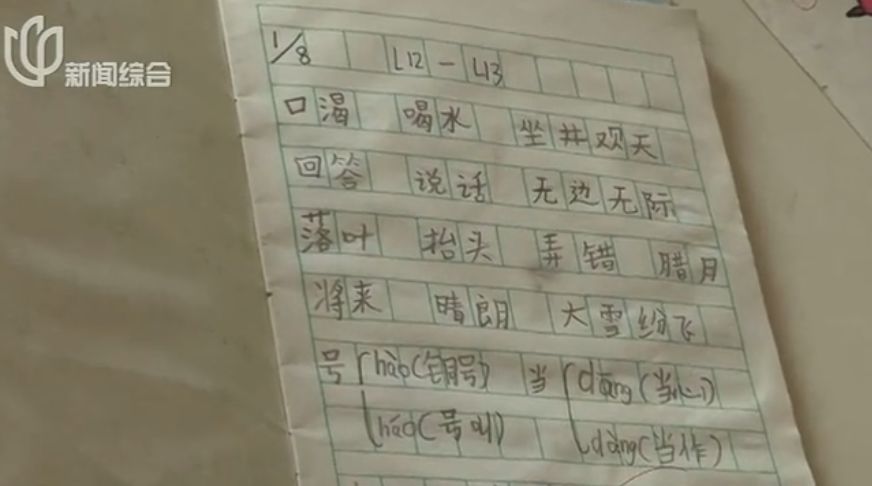 新闻综合
1/8 L12-L13
口渴 喝水 坐井观天
回答 说话 无边无际
落叶 抬头 弄错 腊月
将来 晴朗 大雪纷飞
号 hào(钥号) 当 dāng(当心)
háo(号叫) dàng(当作)